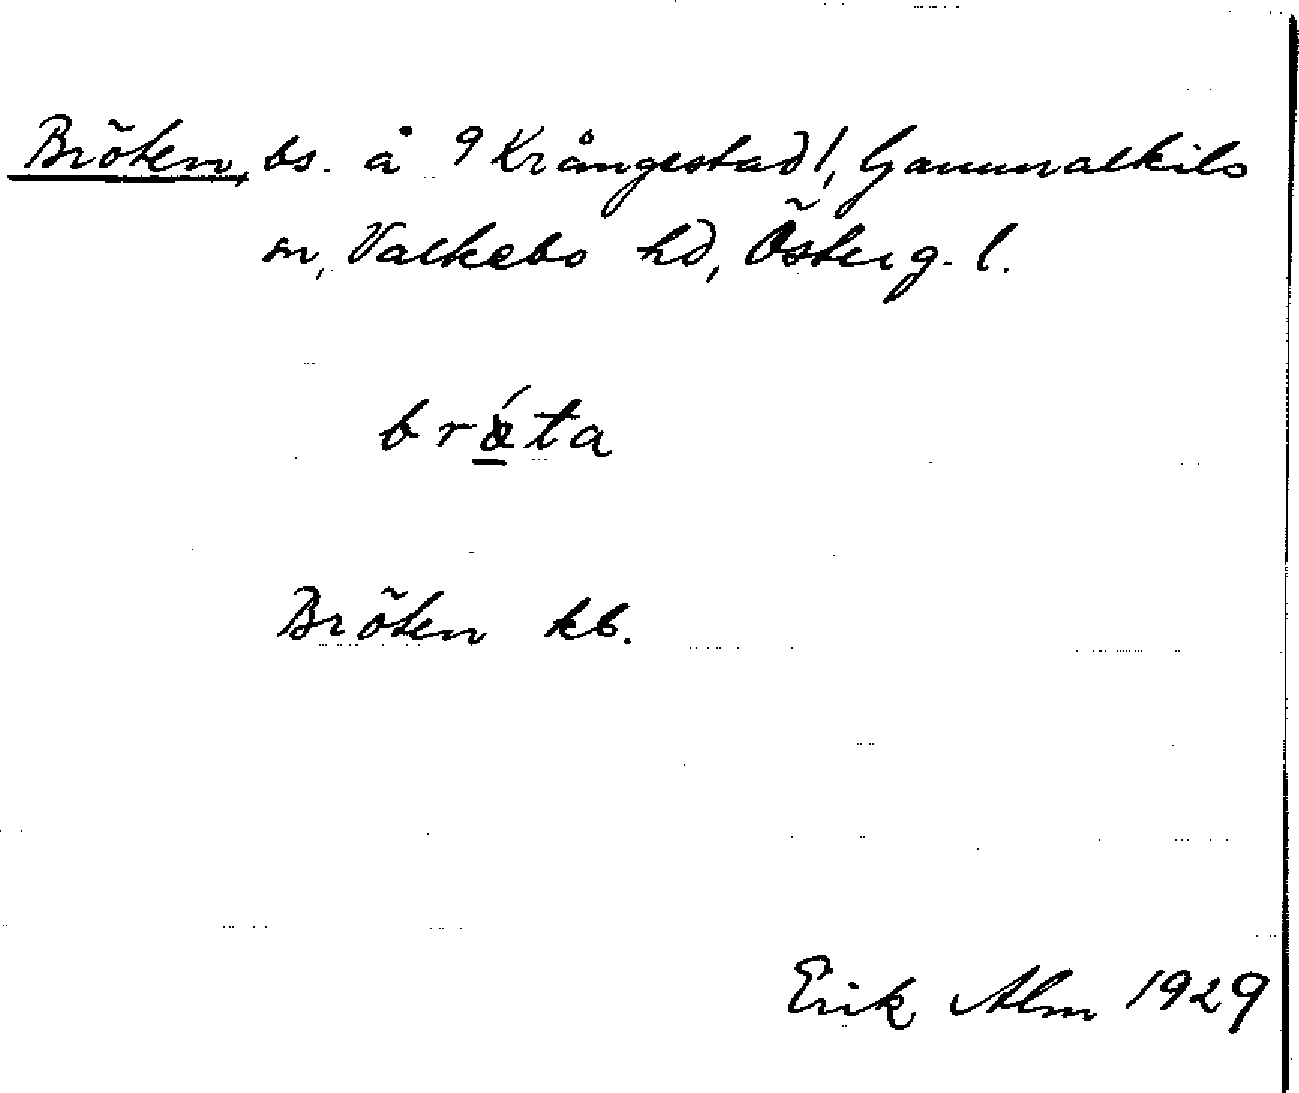 Bröten, bs. å 9 Krångestad!, Gammalkils
sn, Valkebo hd, Österg. l.
bröta
Bröten kb.
Erik Alm 1929